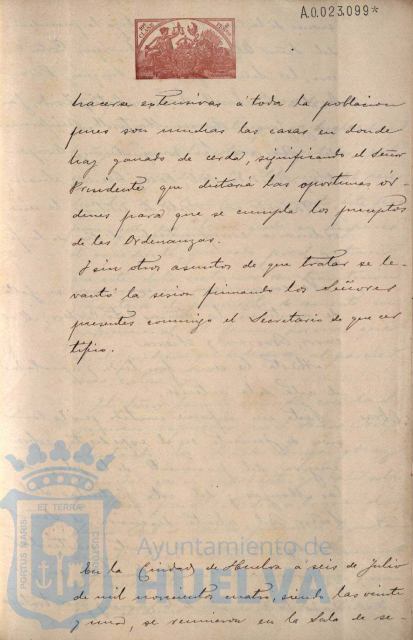 A.0.023.099*
hacerse extensivas á toda la poblacion
pues son muchas las casas en donde
hay ganado de cerda, significando el Señor
Presidente que dictaria las oportunas ór-
denes para que se cumpla los preceptos
de las Ordenanzas.
Y sin otros asuntos de que tratar se le-
vantó la sesion firmando los Señores
presentes conmigo el Secretario de que cer
tifico.
PORTUS MARIS
ET TERRÆ
CUSTODIA
Ayuntamiento de
HUELVA
En la Ciudad de Huelva a seis de Julio
de mil novecientos cuatro, siendo las veinte
y una, se reunieron en la Sala de se-